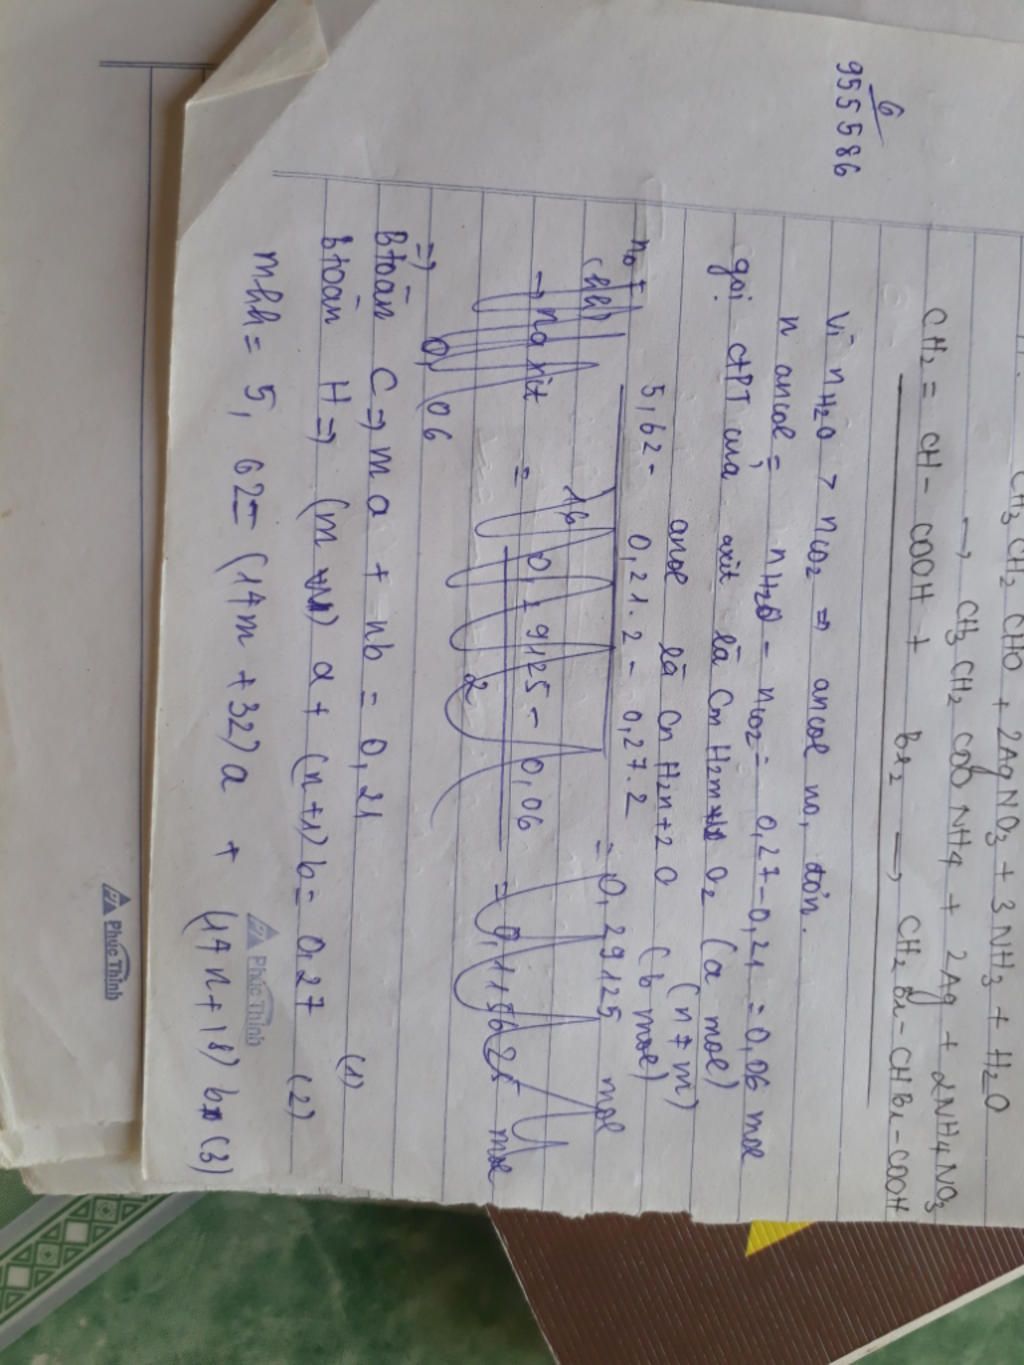 CH3CH2CHO + 2AgNO3 + 3NH3 + H2O
→ CH3CH2COONH4 + 2Ag + 2NH4NO3
CH2 = CH - COOH + Br2 → CH2Br - CHBr - COOH
6
955586
Vì nH2O > nCO2 ⇒ ancol no, đơn.
n ancol = nH2O - nCO2 = 0,27 - 0,21 = 0,06 mol
gọi CTPT của axit là CmH2mO2 (a mol)
(n ≠ m)
ancol là CnH2n+2O (b mol)
nO + 5,62 - 0,21.2 - 0,27.2 = 0,29125 mol
(hh) 16
→ n axit = 0,29125 - 0,06 = 0,115625 mol
2
⇒ 0,06
Btoàn C ⇒ ma + nb = 0,21 (1)
Btoàn H ⇒ (m) a + (n+1) b = 0,27 (2)
mhh = 5,62 = (14m + 32) a + (14n + 18) b (3)
Phúc Thịnh
Phúc Thịnh